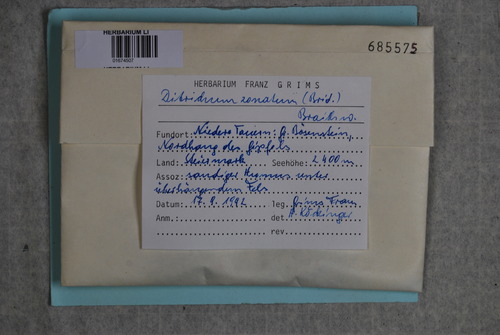 HERBARIUM LI
01674507
685575
HERBARIUM FRANZ GRIMS
Ditrichum zonatum (Brid.)
Fundort: Niedere Tauern: G. Bösenstein,
Nordhang des Gipfels
Land: Steiermark Seehöhe: 2400m
Assoz: sandiger Humus unter
überhängendem Fels
Datum: 17.9.1992 leg. Grims Franz
Anm.: det. H. Köckinger
rev.